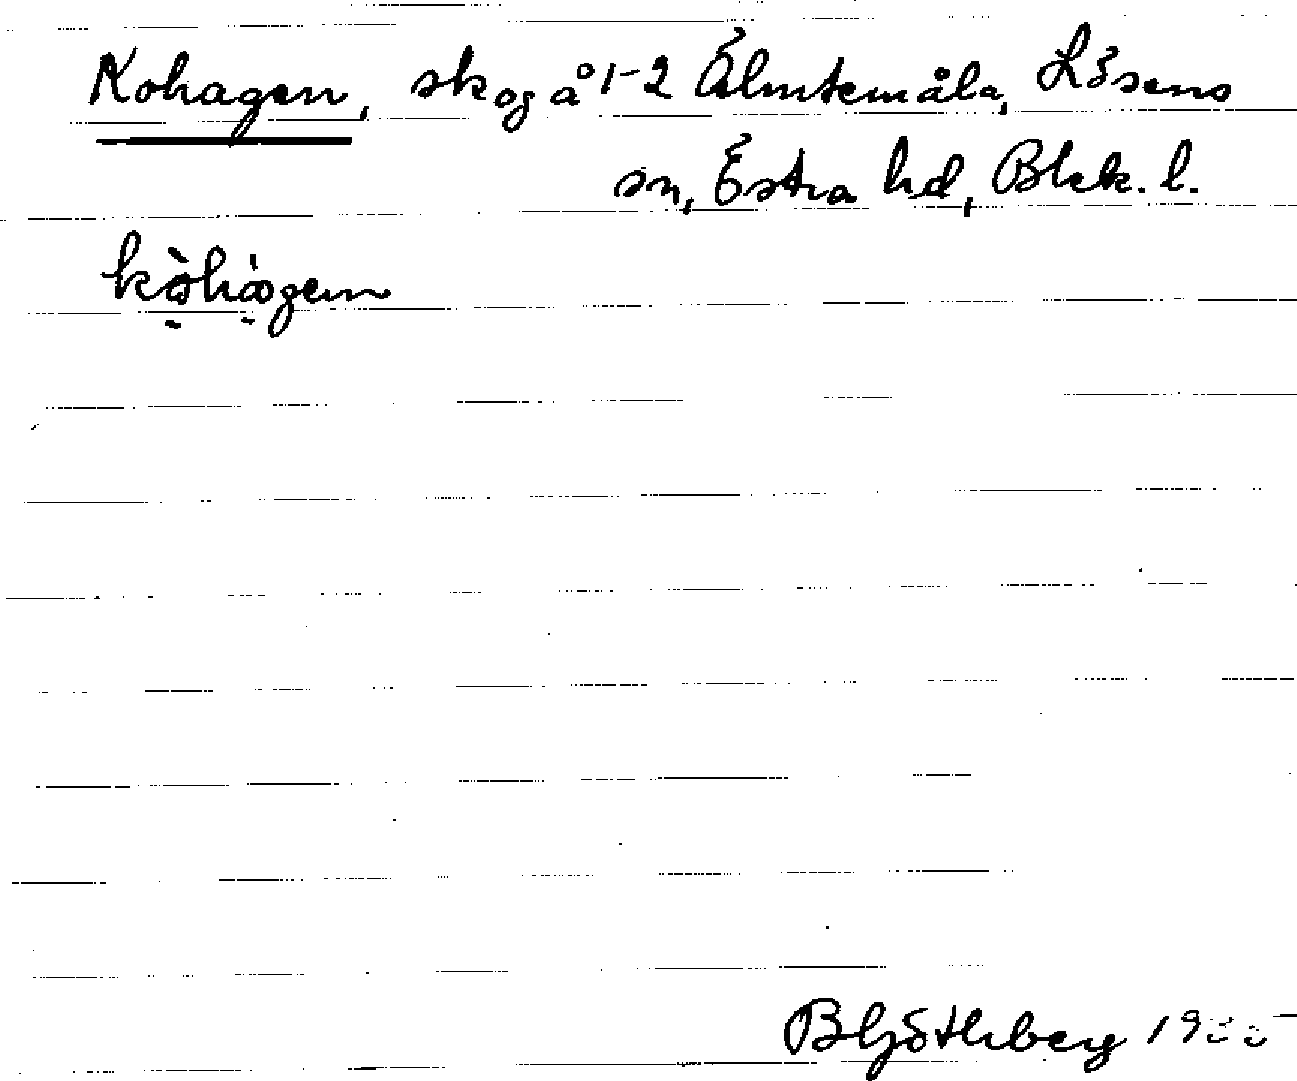 Kohagen, skog å 1-2 Älmtemåla, Lösens
sn, Östra hd, Blek. l.
kòhàgen
B Götlberg 19